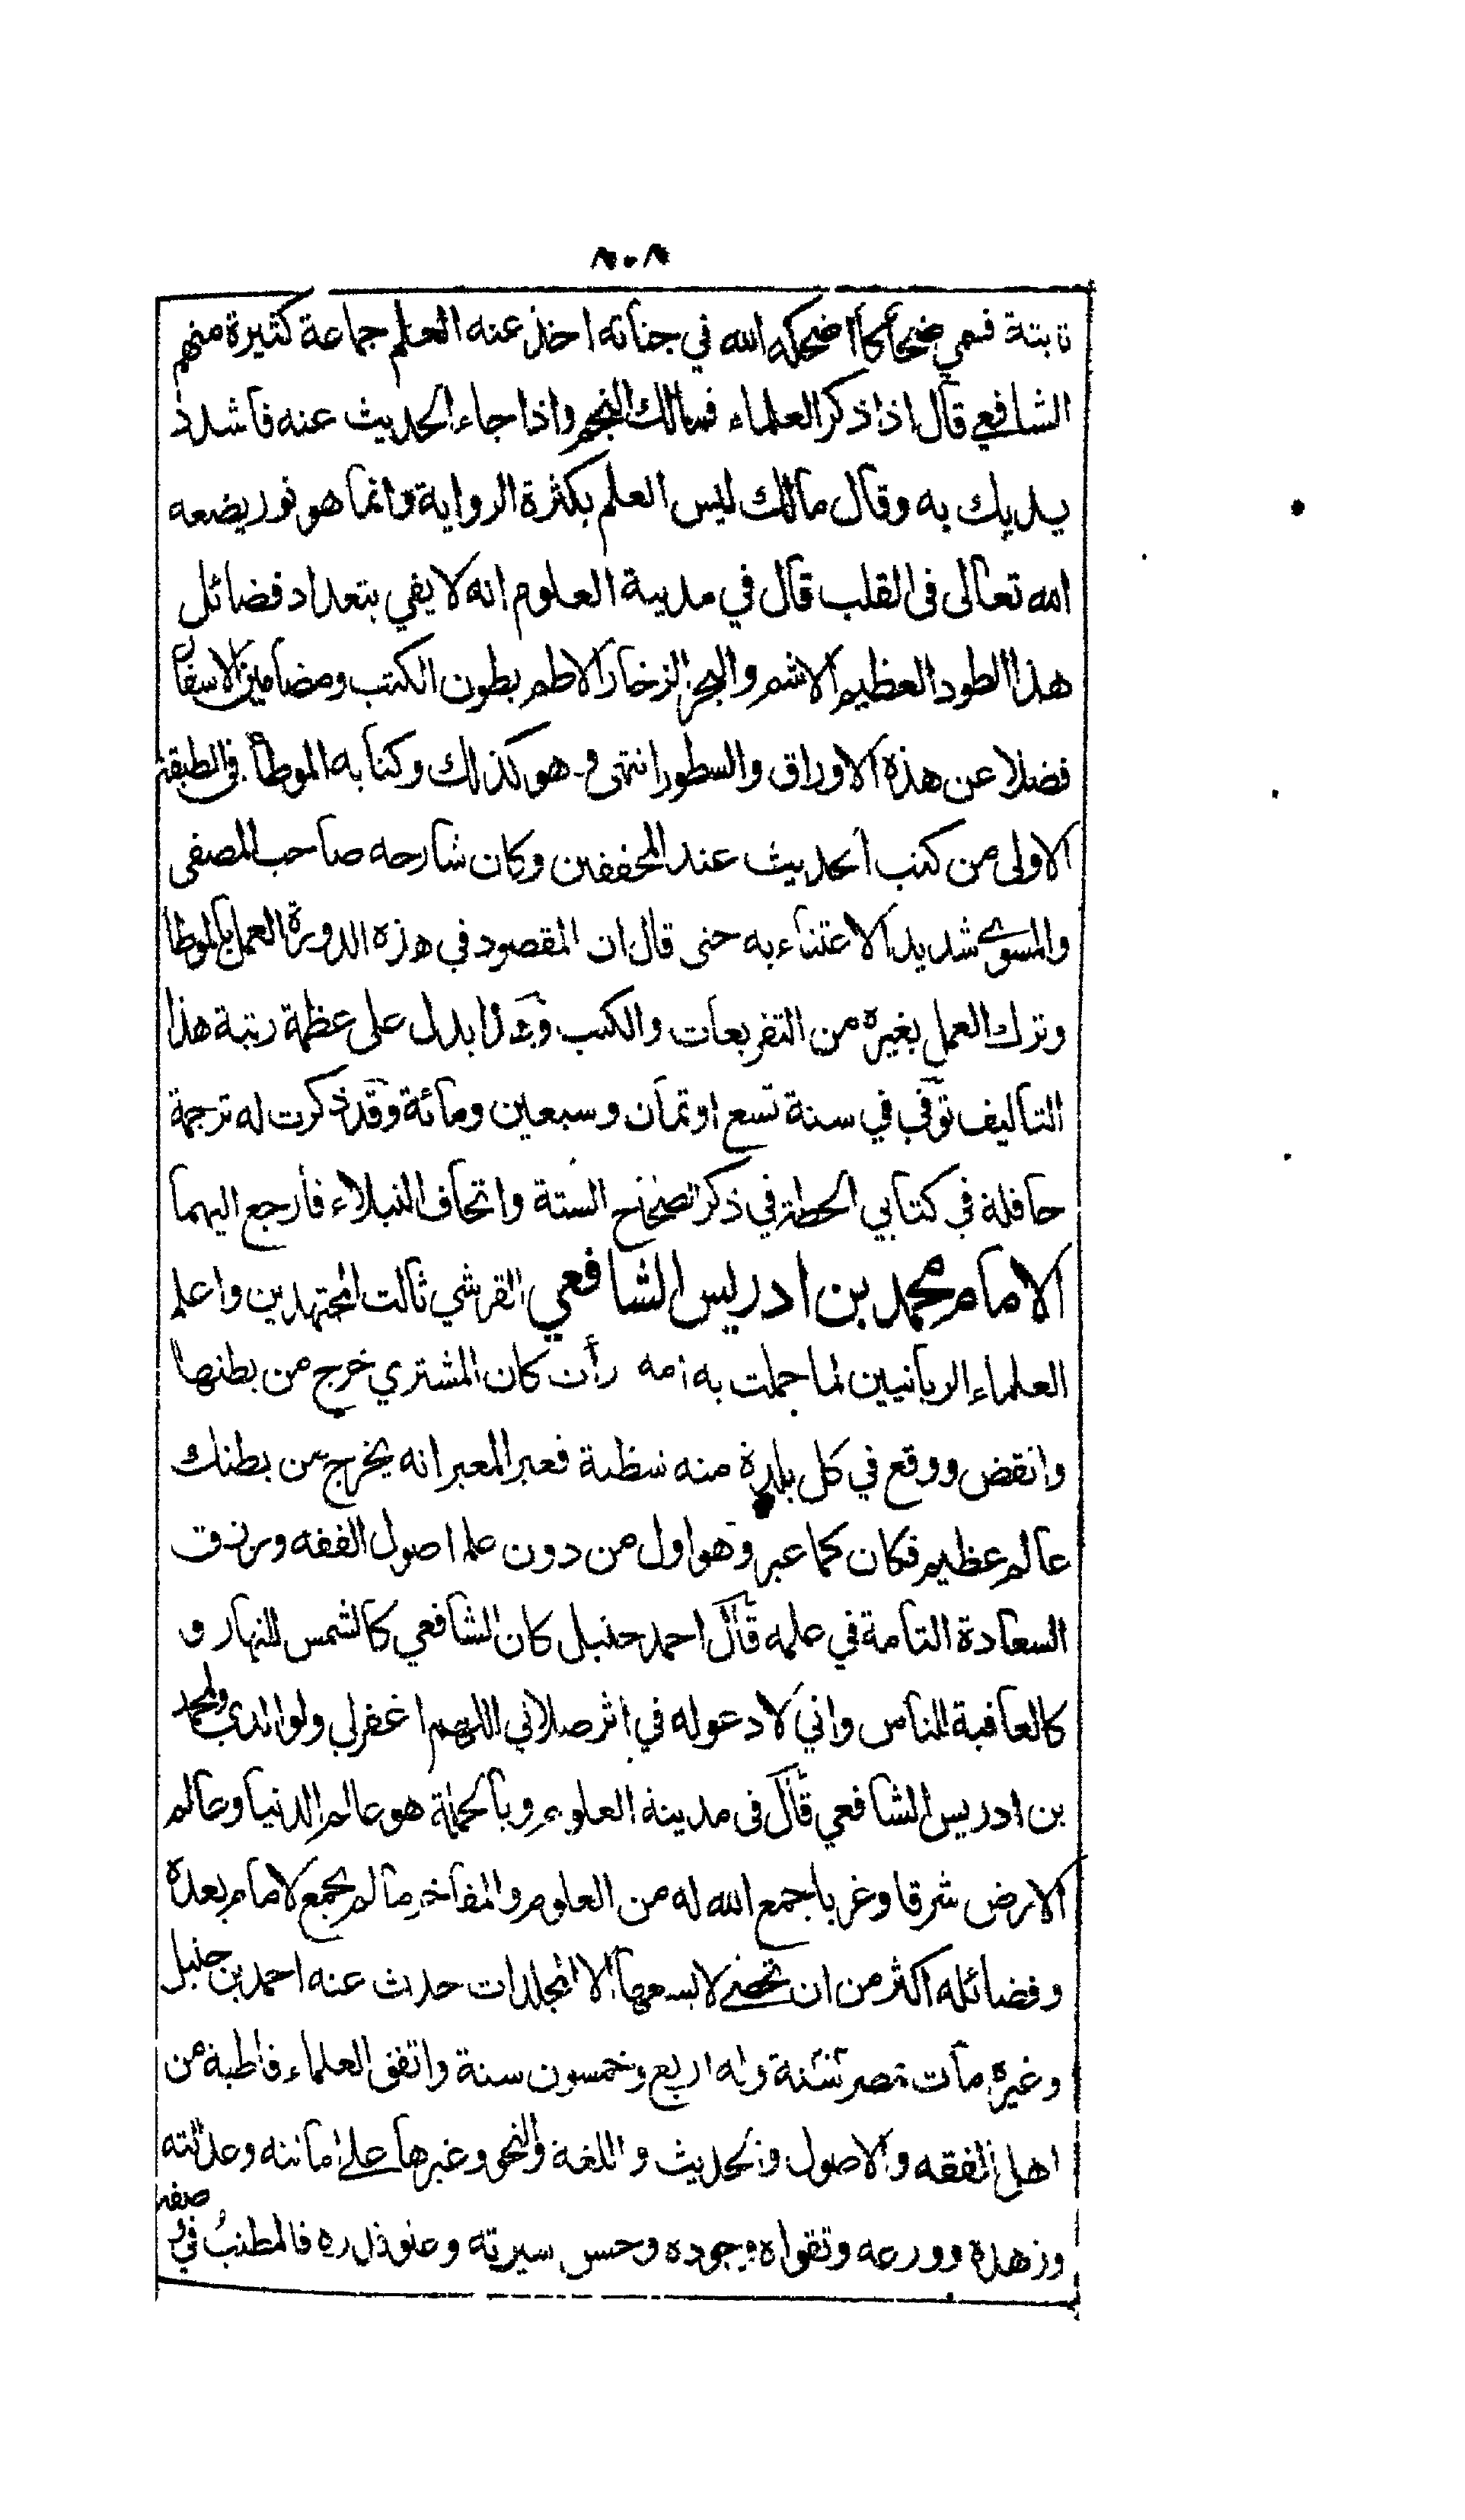 ٨٠٨
نابتة فسمي ضحاكا اضحكه الله في جناته اخذ عنه العلم جماعة كثيرة منهم
الشافعي قال اذا ذكر العلماء فمالك النجم واذا جاء الحديث عنه فاشدد
يديك به وقال مالك ليس العلم بكثرة الرواية وانما هو نور يضعه
الله تعالى في القلب قال في مدينة العلوم انه لا يفي بتعداد فضائل
هذا الطود العظيم الاشم والبحر الزخار الاطم بطون الكتب ومضامين الاسفار
فضلا عن هذه الاوراق والسطور انتهى وهو كذلك وكتابه الموطأ في الطبقة
الاولى من كتب الحديث عند المحققين وكان شارحه صاحب المصفى
والمسوى شديد الاعتناء به حتى قال ان المقصود في هذه الدورة العمل بالموطا
وترك العمل بغيره من التفريعات والكتب وهذا يدل على عظمة رتبة هذا
التاليف توفي في سنة تسع او ثمان وسبعين ومائة وقد ذكرت له ترجمة
حافلة في كتابي الحطة في ذكر الصحاح الستة واتحاف النبلاء فارجع اليهما
الامام محمد بن ادريس الشافعي القرشي ثالث المجتهدين واعلم
العلماء الربانيين لما حملت به امه رأت كان المشتري خرج من بطنها
وانقض ووقع في كل بلدة منه شظية فعبر المعبر انه يخرج من بطنك
عالم عظيم فكان كما عبر وهو اول من دون علم اصول الفقه ورزق
السعادة التامة في علمه قال احمد حنبل كان الشافعي كالشمس للنهار و
كالعافية للناس واني لادعو له في اثر صلاتي اللهم اغفر لي ولوالدي ولمحمد
بن ادريس الشافعي قال في مدينة العلوم وبالجملة هو عالم الدنيا وعالم
الارض شرقا وغربا جمع الله له من العلوم والمفاخر ما لم يجمع لامام بعده
وفضائله اكثر من ان تحصى لا يسعها الا المجلدات حدث عنه احمد بن حنبل
وغيره مات بمصر سنة وله اربع وخمسون سنة واتفق العلماء قاطبة من
اهل الفقه والاصول والحديث واللغة والنحو وغيرها على امانته وعدالته
وزهده وورعه وتقواه وجوده وحسن سيرته وعلو قدره فالمطنب في وصفه